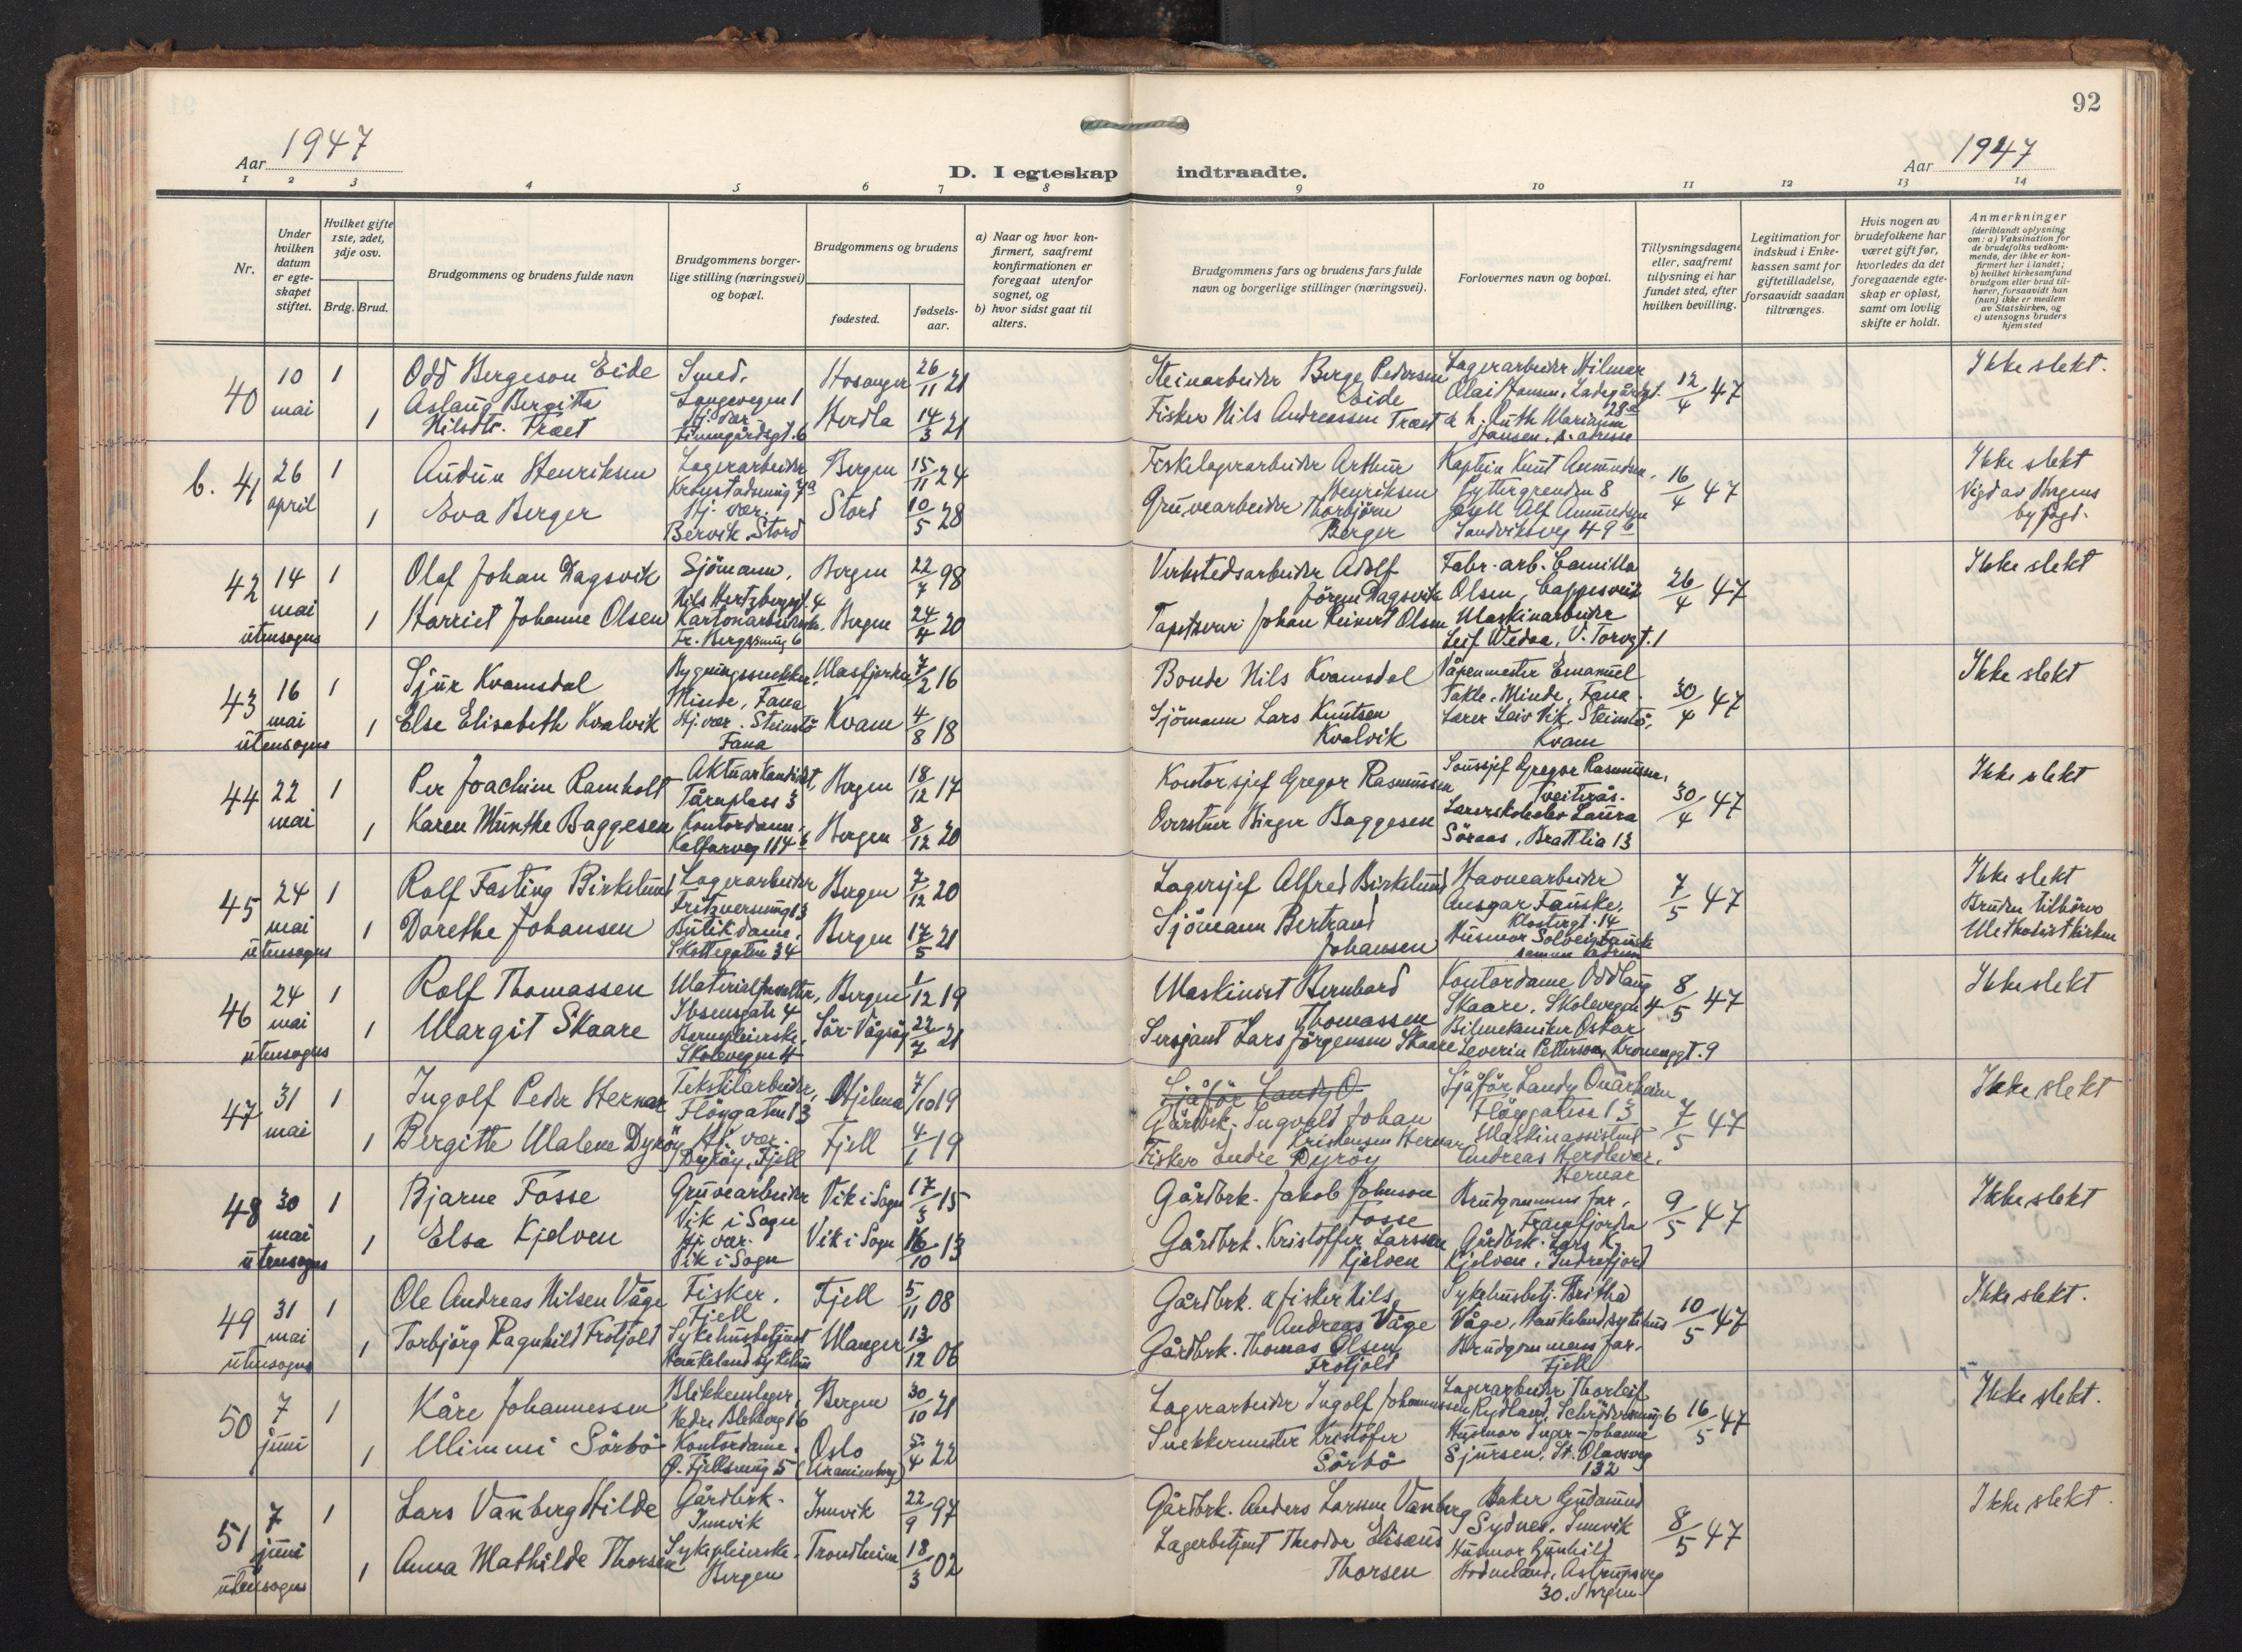 92
Aar 1947
D. I egteskap indtraadte.
Aar 1947
1 2 3 4 5 6 7 8 9 10 11 12 13 14
Nr.
Under hvilken datum er egteskapet stiftet.
Hvilket gifte 1ste, 2det, 3dje osv.
Brdg. Brud.
Brudgommens og brudens fulde navn
Brudgommens borgerlige stilling (næringsvei) og bopæl.
Brudgommens og brudens
fødested.
fødselsaar.
a) Naar og hvor konfirmert, saafremt konfirmationen er foregaat utenfor sognet, og
b) hvor sidst gaat til alters.
Brudgommens fars og brudens fars fulde navn og borgerlige stillinger (næringsvei).
Forlovernes navn og bopæl.
Tillysningsdagene eller, saafremt tillysning ei har fundet sted, efter hvilken bevilling.
Legitimation for indskud i Enkekassen samt for giftetilladelse, forsaavidt saadan tiltrænges.
Hvis nogen av brudefolkene har været gift før, hvorledes da det foregaaende egteskap er opløst, samt om lovlig skifte er holdt.
Anmerkninger
(deriblandt oplysning om: a) Vaksination for de brudefolks vedkommende, der ikke er konfirmert her i landet; b) hvilket kirkesamfund brudgom eller brud tilhører, forsaavidt han (hun) ikke er medlem av Statskirken, og c) utensogns bruders hjemsted
40 10 mai 1 Odd Bergeson Eide Smed, Langevegen 1 Hosanger 26/11 21 Steinarbeider Berge Pedersen Eide Lagerarbeider Hilmar Olai Jansen, Ladegårdsgt. 28a 12/4 47 Ikke slekt.
1 Aslaug Bergitta Nilsdtr. Træet Hj. vær. Finnegårdsgt. 6 Herdla 14/3 21 Fisker Nils Andreassen Træet & h. Ruth Marianne Jansen, s. adresse
b. 41 26 april 1 Audun Henriksen Lagerarbeider 7a Bergen 15/11 24 Fiskelagerarbeider Arthur Henriksen Kaptein Knut Amundsen, Lyttergrenden 8 16/4 47 Ikke slekt Vigd av Bergens byfogd.
1 Eva Berger Hj. vær. Bervik, Stord Stord 10/5 28 Gruvearbeider Thorbjörn Berger Alf Amundsen Sandviksveg 49b
42 14 mai utensogns 1 Olaf Johan Dagsvik Sjömann, Nils Hertzbergsgt. 4 Bergen 22/7 98 Verkstedsarbeider Adolf Jörgen Dagsvik Fabr.-arb. Camilla Olsen, Cappesveit 26/4 47 Ikke slekt
1 Harriet Johanne Olsen Kartonarbeiderske, 6 Bergen 24/4 20 Tapetserer Johan Reinert Olsen Maskinarbeider Leif Wedaa, V. Torvgt. 1
43 16 mai utensogns 1 Sjur Kvamsdal Bygningssnekker, Minde, Fana Masfjorden 7/2 16 Bonde Nils Kvamsdal Våpenmester Emanuel Takle, Minde, Fana. 30/4 47 Ikke slekt
1 Else Elisabeth Kvalvik Hj. vær. Steinstö Fana Kvam 4/8 18 Sjömann Lars Knutsen Kvalvik Lærer Leiv Vik, Steinstö, Kvam
44 22 mai 1 Per Joachim Ramholt Aktuarkandidat, Tårnplass 3 Bergen 18/12 17 Kontorsjef Gregor Rasmussen Gregor Rasmussen, Tveiterås. 30/4 47 Ikke slekt
1 Karen Munthe Baggesen Kontordame, Kalfarveg 114b Bergen 8/12 20 Birger Baggesen Laura Söraas, Brattlia 13
45 24 mai utensogns 1 Rolf Fasting Birkelund Lagerarbeider 13 Bergen 7/12 20 Lagersjef Alfred Birkelund Havnearbeider Ansgar Fauske, Klostergt. 14 7/5 47 Ikke slekt Bruden tilhörer Methodistkirken
1 Dorethe Johansen Butikdame, Skottegaten 34 Bergen 17/5 21 Sjömann Bertrand Johansen Husmor Solveig Fauske samme adresse
46 24 mai utensogns 1 Rolf Thomassen Materialforvalter, Ibsensgate 4 Bergen 1/12 19 Maskinist Bernhard Thomassen Kontordame Oddlaug Skaare, Skolevegen 4 8/5 47 Ikke slekt
1 Margit Skaare Barnepleierske, Skolevegen 4 Sör-Vågsöy 22/7 21 Sersjant Lars Jörgensen Skaare Bilmekaniker Oskar Severin Petterson, Kronengt. 9
47 31 mai 1 Ingolf Peder Hernar Tekstilarbeider, Flöygaten 13 Hjelma 7/10 19 Sjåför Landy O Gårdbrk. Ingvald Johan Kristensen Hernar Sjåför Landy Onarheim Flöygaten 13 7/5 47 Ikke slekt
1 Bergitte Malene Dyröy Hj. vær. Dyröy, Fjell Fjell 4/1 19 Fisker Endre Dyröy Maskinassistent Andreas Herdlevær, Hernar
48 30 mai utensogns 1 Bjarne Fosse Gruvearbeider Vik i Sogn Vik i Sogn 17/3 15 Gårdbrk. Jakob Johnson Fosse Brudgommens far, Framfjorden 9/5 47 Ikke slekt
1 Elsa Kjelven Hj. vær. Vik i Sogn Vik i Sogn 16/10 13 Gårdbrk. Kristoffer Larssen Kjelven Gårdbrk. Lars K. Kjelven, Indrefjord
49 31 mai utensogns 1 Ole Andreas Nilsen Våge Fisker, Fjell Fjell 5/11 08 Gårdbrk. & fisker Nils Andreas Våge Sykehusbetj. Britha Våge, Haukeland sykehus 10/5 47 Ikke slekt.
1 Torbjörg Ragnhild Frotjold Sykehusbetjent Haukeland sykehus Manger 13/12 06 Gårdbrk. Thomas Olsen Frotjold Brudgommens far, Fjell
50 7 juni 1 Kåre Johannessen Blikkenslager, Nedre Blekeveg 16 Bergen 30/10 21 Lagerarbeider Ingolf Johannessen Lagerarbeider Thorleif Rydland, 6 16/5 47 Ikke slekt.
1 Mimmi Sörbö Kontordame, Ø. Fjellsmug 5 Oslo (Uranienborg) 5/4 22 Snekkermester Kristofer Sörbö Husmor Inger-Johanne Sjursen, St. Olavsveg 132
51 7 juni utensogns 1 Lars Vanberg Hilde Gårdbrk. Innvik Innvik 22/9 97 Gårdbrk. Anders Larssen Vanberg Baker Gudmund Sydnes, Innvik 8/5 47 Ikke slekt.
1 Anna Mathilde Thorsen Sykepleierske, Bergen Trondheim 18/3 02 Lagerbetjent Theodor Elisæus Thorsen Husmor Gunhild Hodneland, Astrupsveg 30. Bergen